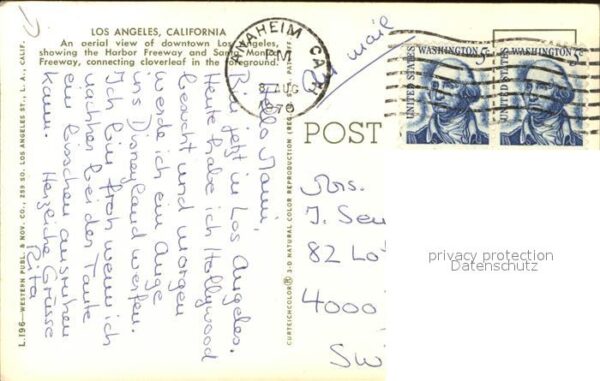 LOS ANGELES, CALIFORNIA
An aerial view of downtown Los Angeles,
showing the Harbor Freeway and Santa Monica
Freeway, connecting cloverleaf in the foreground.
Hallo Mami,
Bin jetzt in Los Angeles.
Heute habe ich Hollywood
besucht und morgen
werde ich ein Auge
ins Disneyland werfen.
Ich bin froh wenn ich
nachher bei der Tante
ein bisschen ausruhen
kann. Herzliche Grüsse
Rita
L.196—WESTERN PUBL. & NOV. CO., 259 SO. LOS ANGELES ST., L. A., CALIF.
CURTEICHCOLOR® 3-D NATURAL COLOR REPRODUCTION (REG. U.S. PAT. OFF.
ANAHEIM CA
PM
8 AUG
1970
mail
UNITED STATES
WASHINGTON 5c
UNITED STATES
WASHINGTON 5c
POST
Mrs.
J. Sen
82 Lo
4000
Swi
privacy protection
Datenschutz